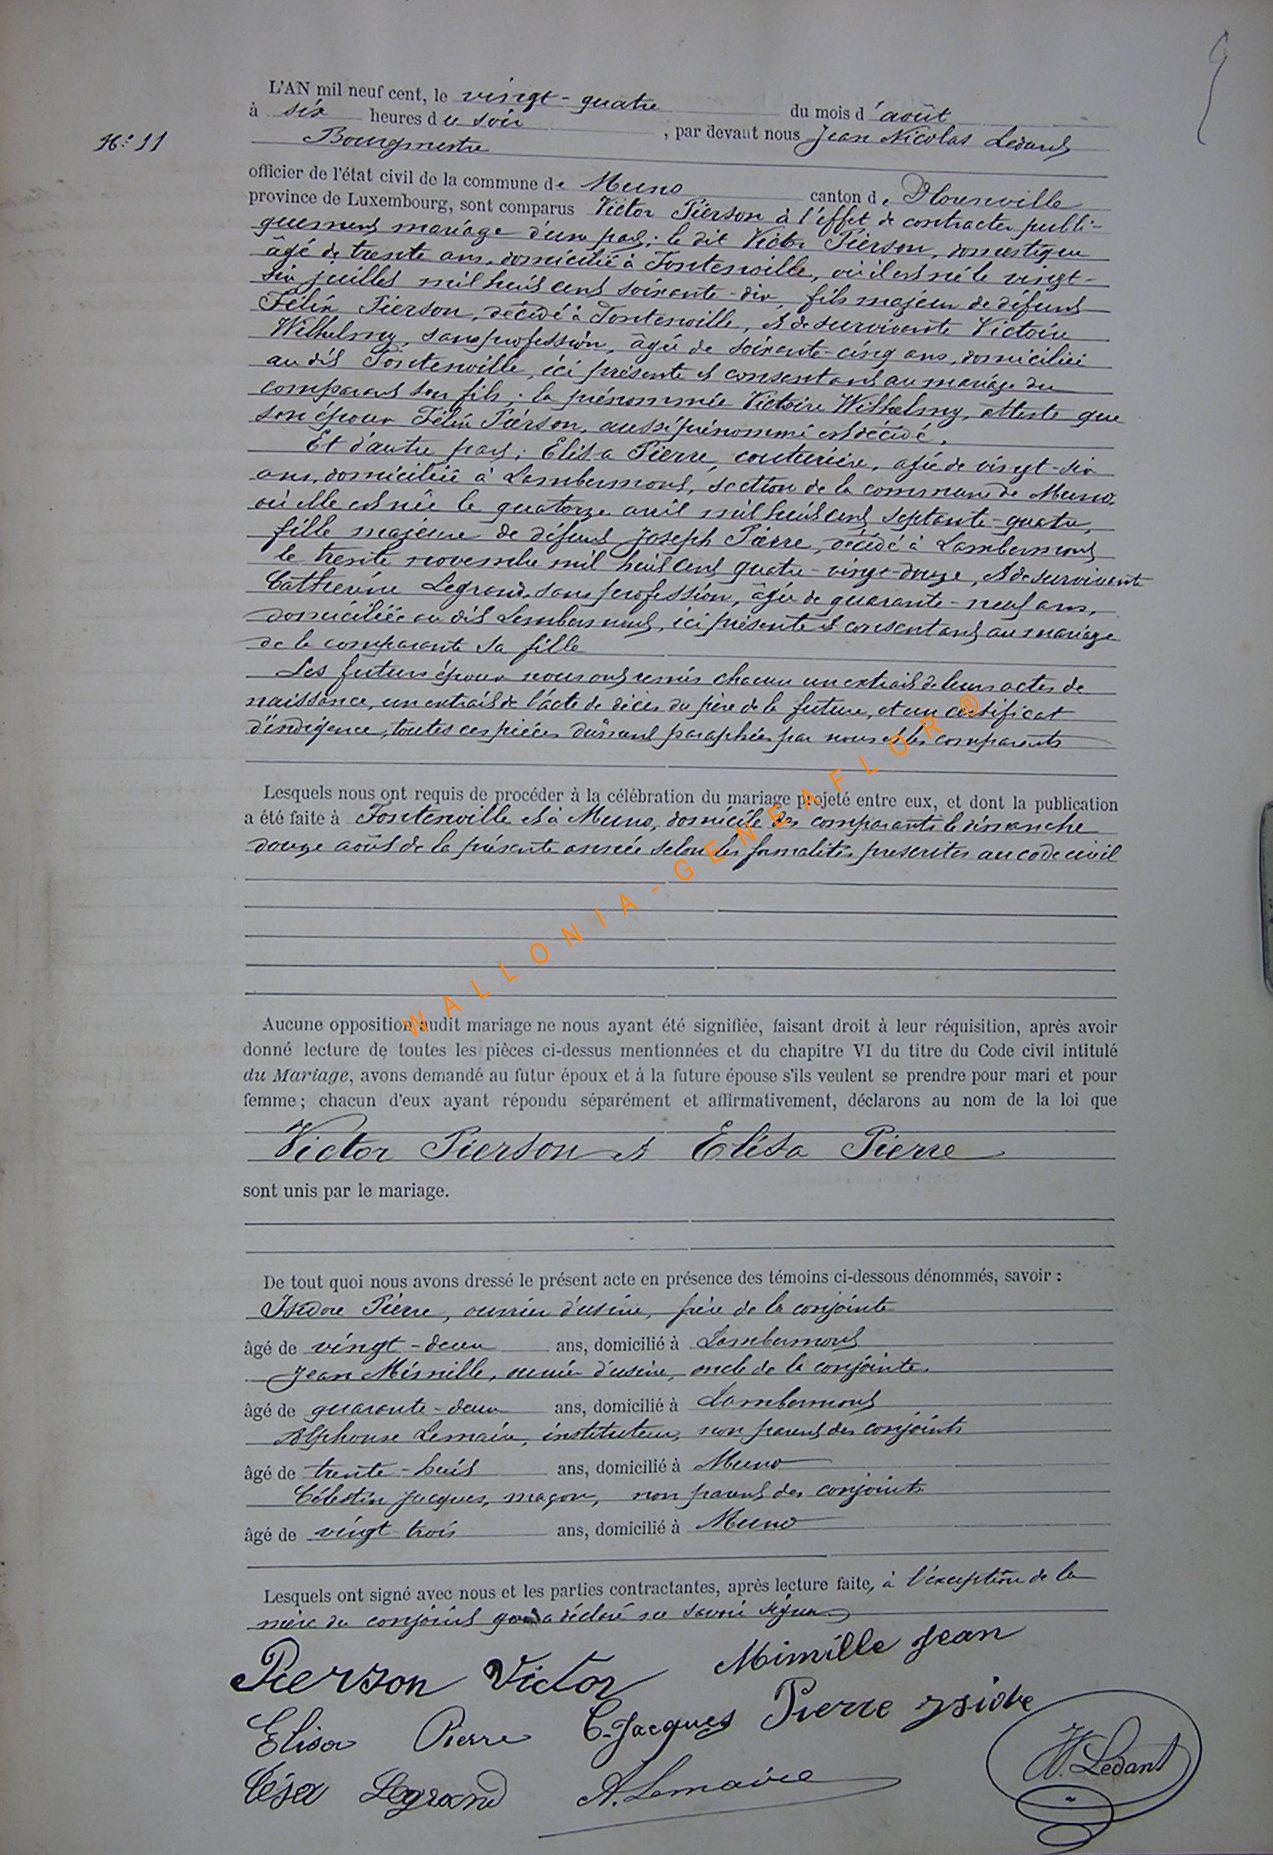 L'AN mil neuf cent, le vingt-quatre du mois d'août
à six heures du soir, par devant nous Jean Nicolas Ledant
N° 11
Bourgmestre
officier de l'état civil de la commune de Muno canton de Florenville
province de Luxembourg, sont comparus Victor Pierson à l'effet de contracter publi-
quement mariage d'une part; le dit Victor Pierson, domestique
âgé de trente ans, domicilié à Fontenoille, où il est né le vingt-
six juillet mil huit cent soixante-dix, fils majeur de défunt
Félix Pierson, décédé à Fontenoille, et de survivante Victoire
Wilhelmy, sans profession, âgée de soixante-cinq ans, domiciliée
au dit Fontenoille, ici présente et consentant au mariage du
comparant son fils; la prénommée Victoire Wilhelmy, atteste que
son époux Félix Pierson, aussi prénommé est décédé.
Et d'autre part; Elisa Pierre, couturière, agée de vingt-six
ans, domiciliée à Lambermont, section de la commune de Muno,
où elle est née le quatorze avril mil huit cent septante-quatre,
fille majeure de défunt Joseph Pierre, décédé à Lambermont
le trente novembre mil huit cent quatre-vingt-douze, et de survivent
Catherine Legrand, sans profession, âgée de quarante-neuf ans,
domiciliée au dit Lambermont, ici présente et consentant au mariage
de la comparante sa fille
Les futurs époux nous ont remis chacun un extrait de leurs actes de
naissance, un extrait de l'acte de décès du père de la future, et un certificat
d'indigence, toutes ces pièces dûment paraphées par nous et les comparants
Lesquels nous ont requis de procéder à la célébration du mariage projeté entre eux, et dont la publication
a été faite à Fontenoille et à Muno, domicile des comparants le dimanche
douze août de la présente année selon les formalités prescrites au code civil
WALLONIA-GENEAFLOR®
Aucune opposition audit mariage ne nous ayant été signifiée, faisant droit à leur réquisition, après avoir
donné lecture de toutes les pièces ci-dessus mentionnées et du chapitre VI du titre du Code civil intitulé
du Mariage, avons demandé au futur époux et à la future épouse s'ils veulent se prendre pour mari et pour
femme ; chacun d'eux ayant répondu séparément et affirmativement, déclarons au nom de la loi que
Victor Pierson et Elisa Pierre
sont unis par le mariage.
De tout quoi nous avons dressé le présent acte en présence des témoins ci-dessous dénommés, savoir :
Isidore Pierre, ouvrier d'usine, frère de la conjointe
âgé de vingt-deux ans, domicilié à Lambermont
Jean Mismille, ouvrier d'usine, oncle de la conjointe.
âgé de quarante-deux ans, domicilié à Lambermont
Alphonse Lemaire, instituteur, non parent des conjoints
âgé de trente-huit ans, domicilié à Muno
Célestin Jacques, maçon, non parent des conjoints
âgé de vingt trois ans, domicilié à Muno
Lesquels ont signé avec nous et les parties contractantes, après lecture faite, à l'exception de la
mère du conjoint qui a déclaré ne savoir signer
Pierson Victor Mimille Jean
Elisa Pierre C. Jacques Pierre Isidore
Legrand A. Lemaire N. Ledant